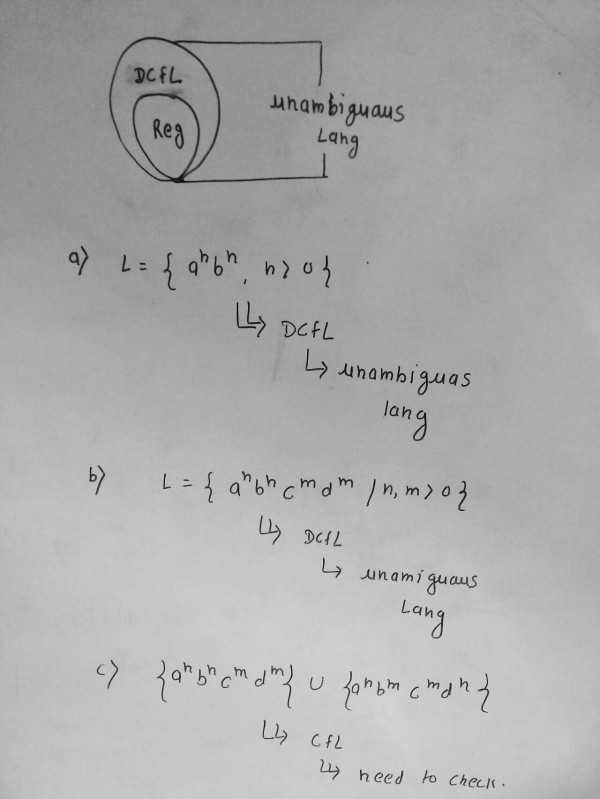 DCFL
Reg
unambiguaus
Lang
a) L = { aⁿbⁿ, n > 0 }
DCFL
unambiguas
lang
b) L = { aⁿbⁿcᵐdᵐ / n, m > 0 }
DCFL
unamiguaus
Lang
c) {aⁿbⁿcᵐdᵐ} ∪ {aⁿbᵐcᵐdⁿ}
CFL
need to check.